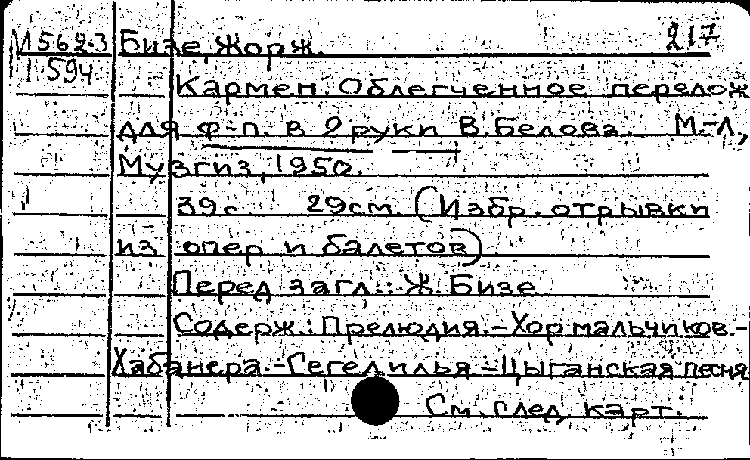 М562-3 Бизе, Жорж. 217
1594
Кармен. Облегченное перелож
для ф-п. в 2 руки В. Белова. М.-Л.,
Музгиз, 1950.
39с. 29см. (Избр. отрывки
из опер и балетов)
Перед загл.: Ж. Бизе
Содерж.: Прелюдия.-Хор мальчиков.-
Хабанера.-Сегедилья-Цыганская песня
См. след. карт.